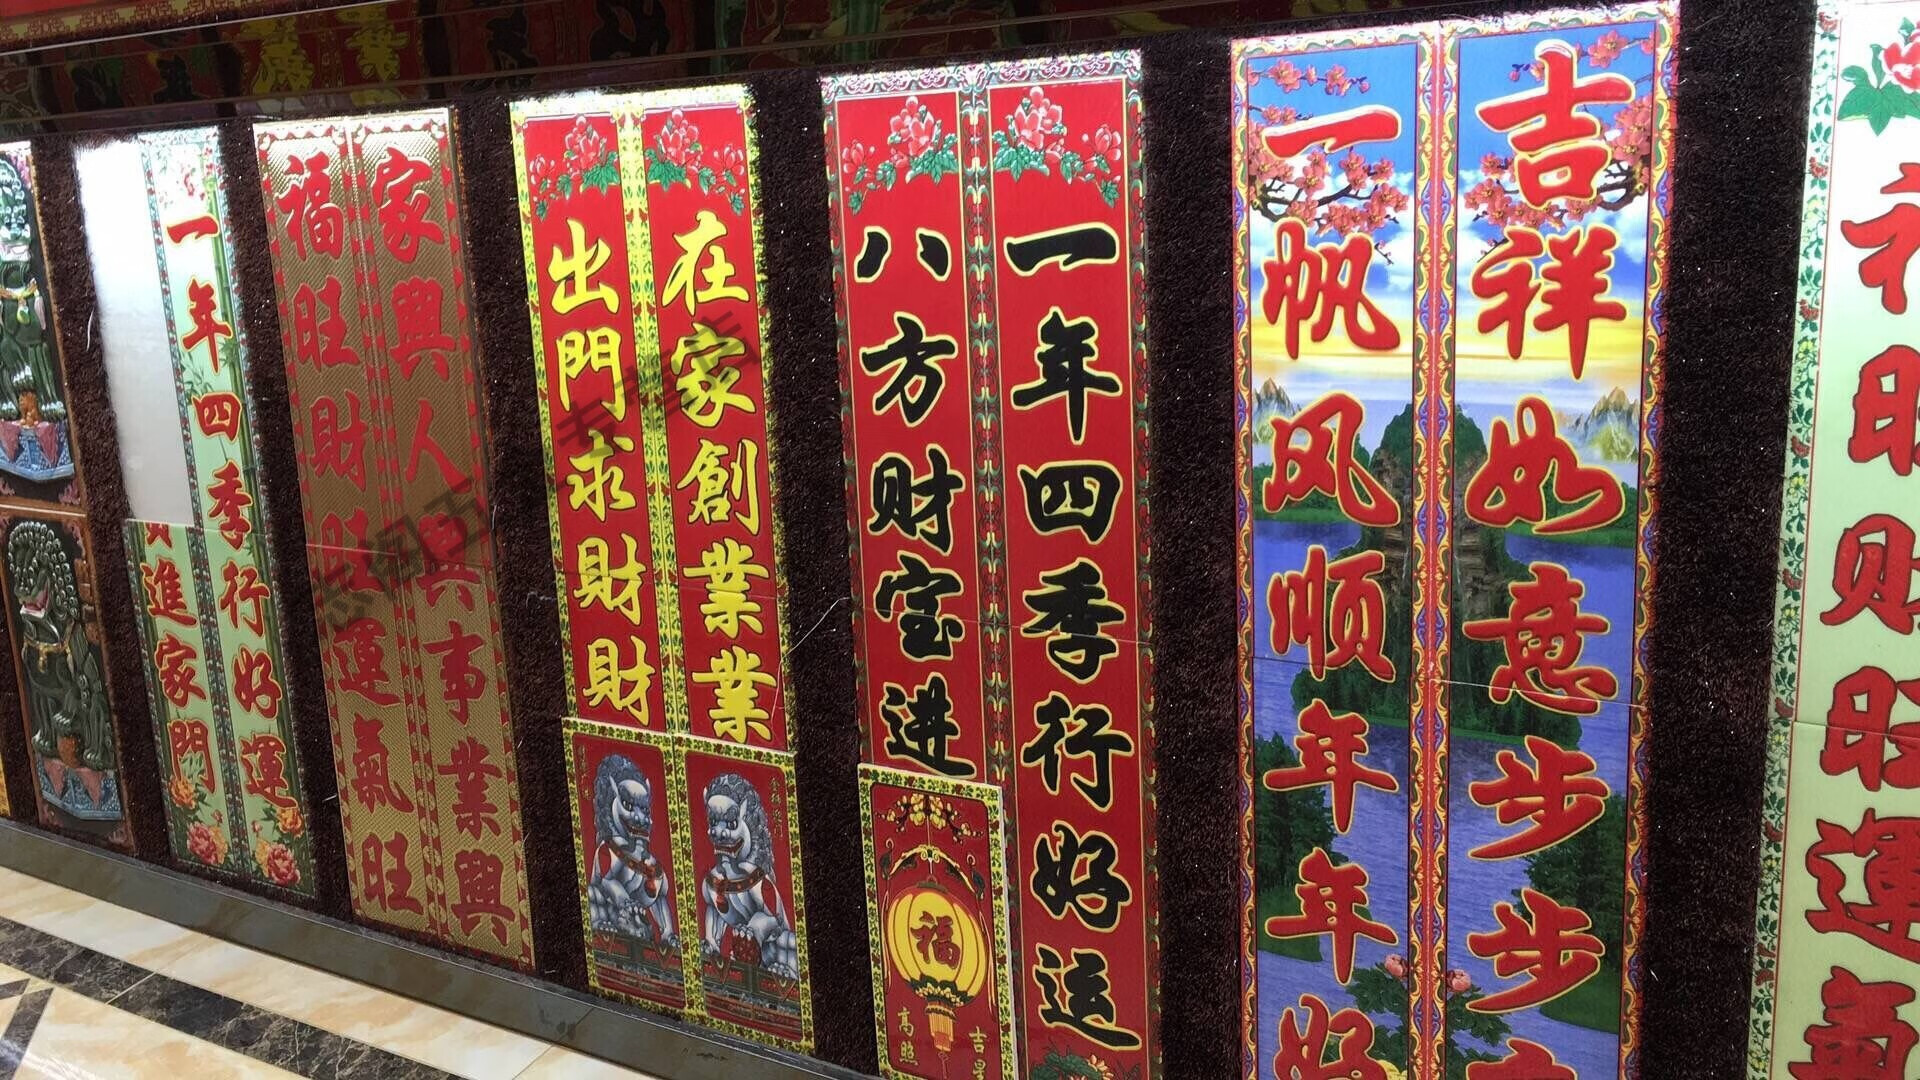 一年四季行好運
進家門
福旺財旺運氣旺
家興人興事業興
出門求財財
在家創業業
八方财宝进
一年四季行好运
一帆风顺年年好
吉祥如意步步
旺财旺運氣
福
高照
吉星
专营店